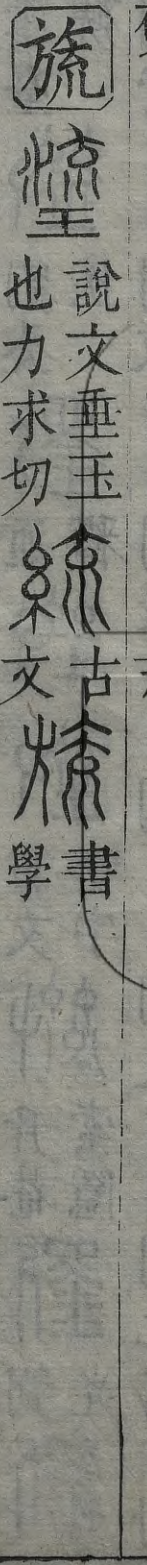 旒 瑬 說文垂玉
也力求切 統 古
文 𣃦 書
學